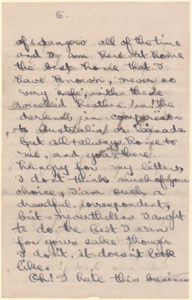 6.
of dangers all of the time
and I am here at home
the best home that I
have known, never so
very safe, with these
heathen in the
darkness in comparison
to Australia or Canada
but all always home to
me, and you were
hungry for my letters,
I don't think much of your
choice, I am such a
dreadful correspondent,
but nevertheless I ought
to do the best I can
for your sake though
I don't, it doesn't look
like.
Oh! I hate this business